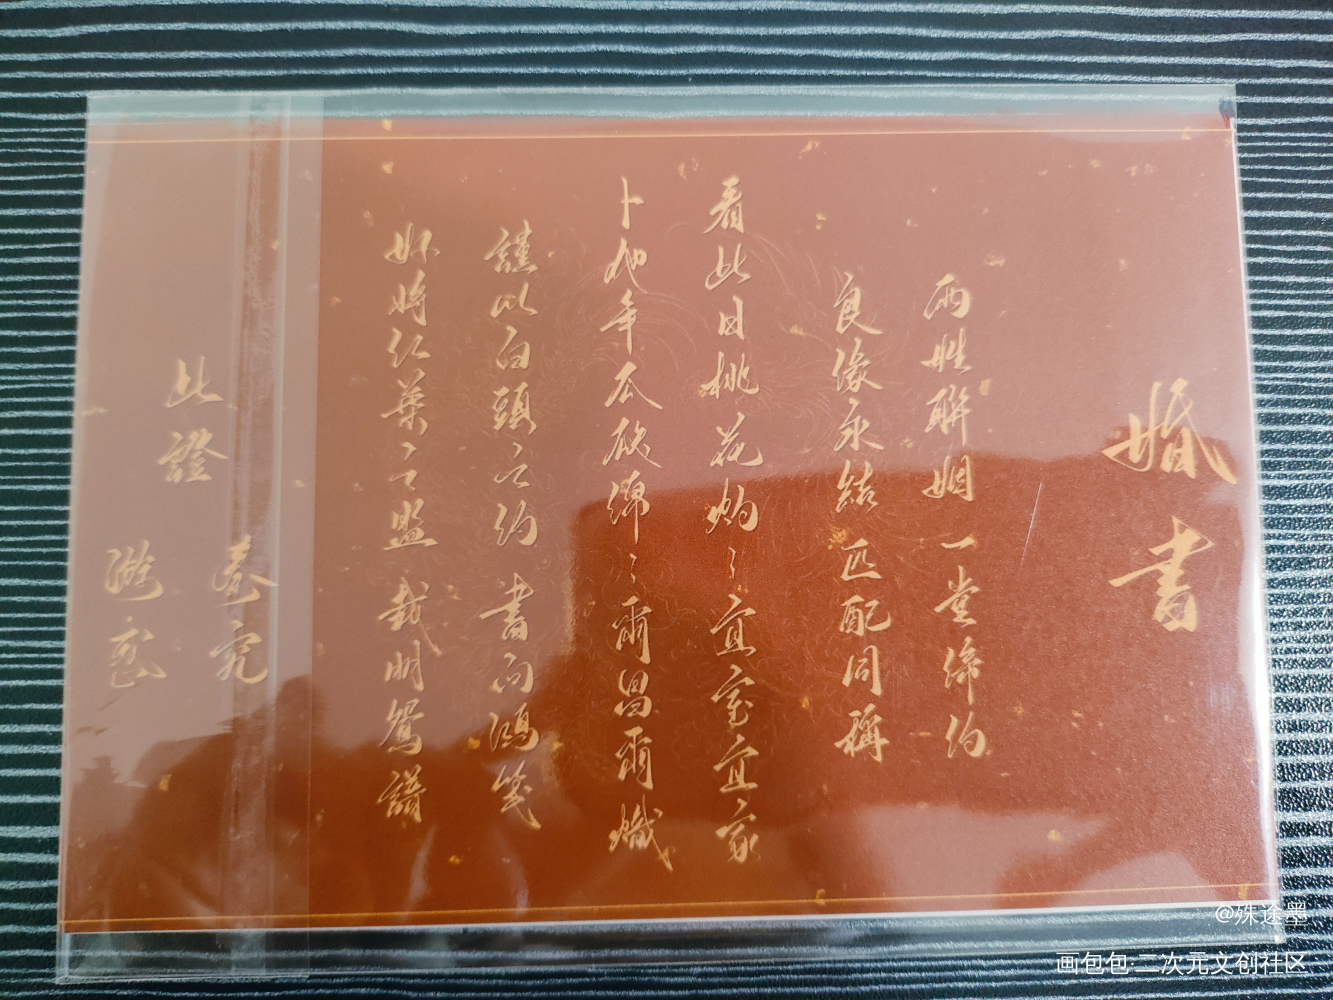 婚書
兩姓聯姻 一堂締約
良緣永結 匹配同稱
看此日桃花灼灼 宜室宜家
卜他年瓜瓞綿綿 爾昌爾熾
謹以白頭之約 書向鴻箋
好將紅葉之盟 載明鴛譜
此證
秦究
游惑
@殊途墨
画包包·二次元文创社区